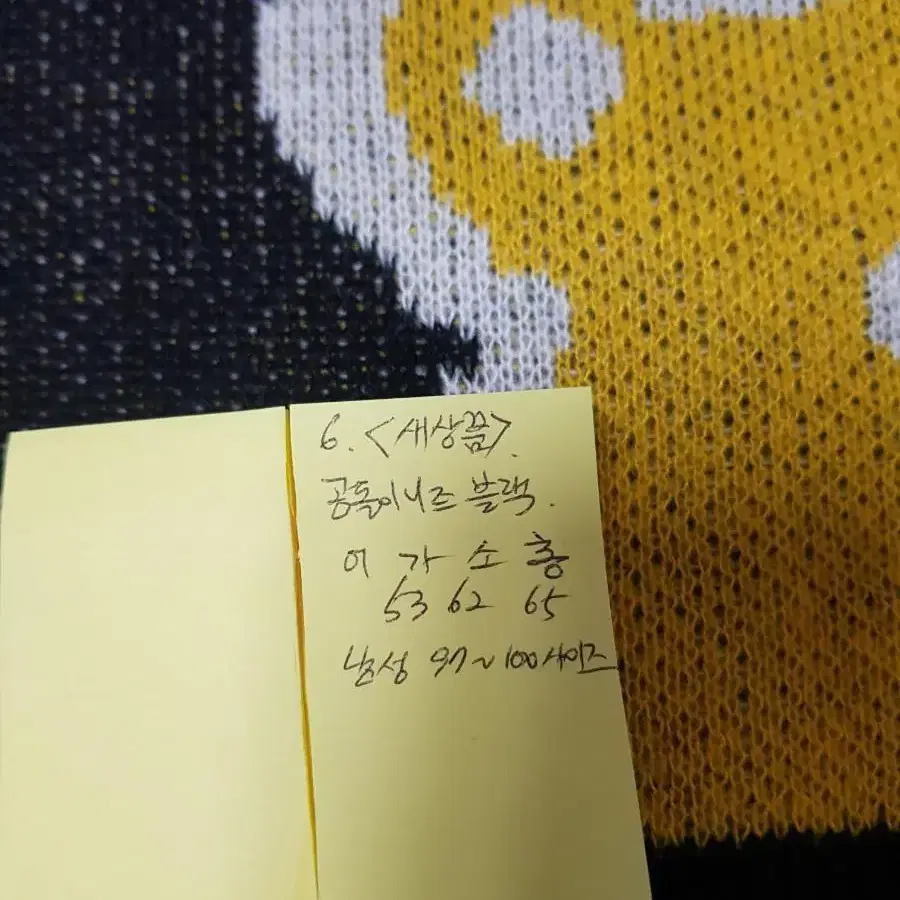 6. <새상품>.
공돌이니즈 블랙.
어 가 소 총
53 62 65
남성 97~100사이즈